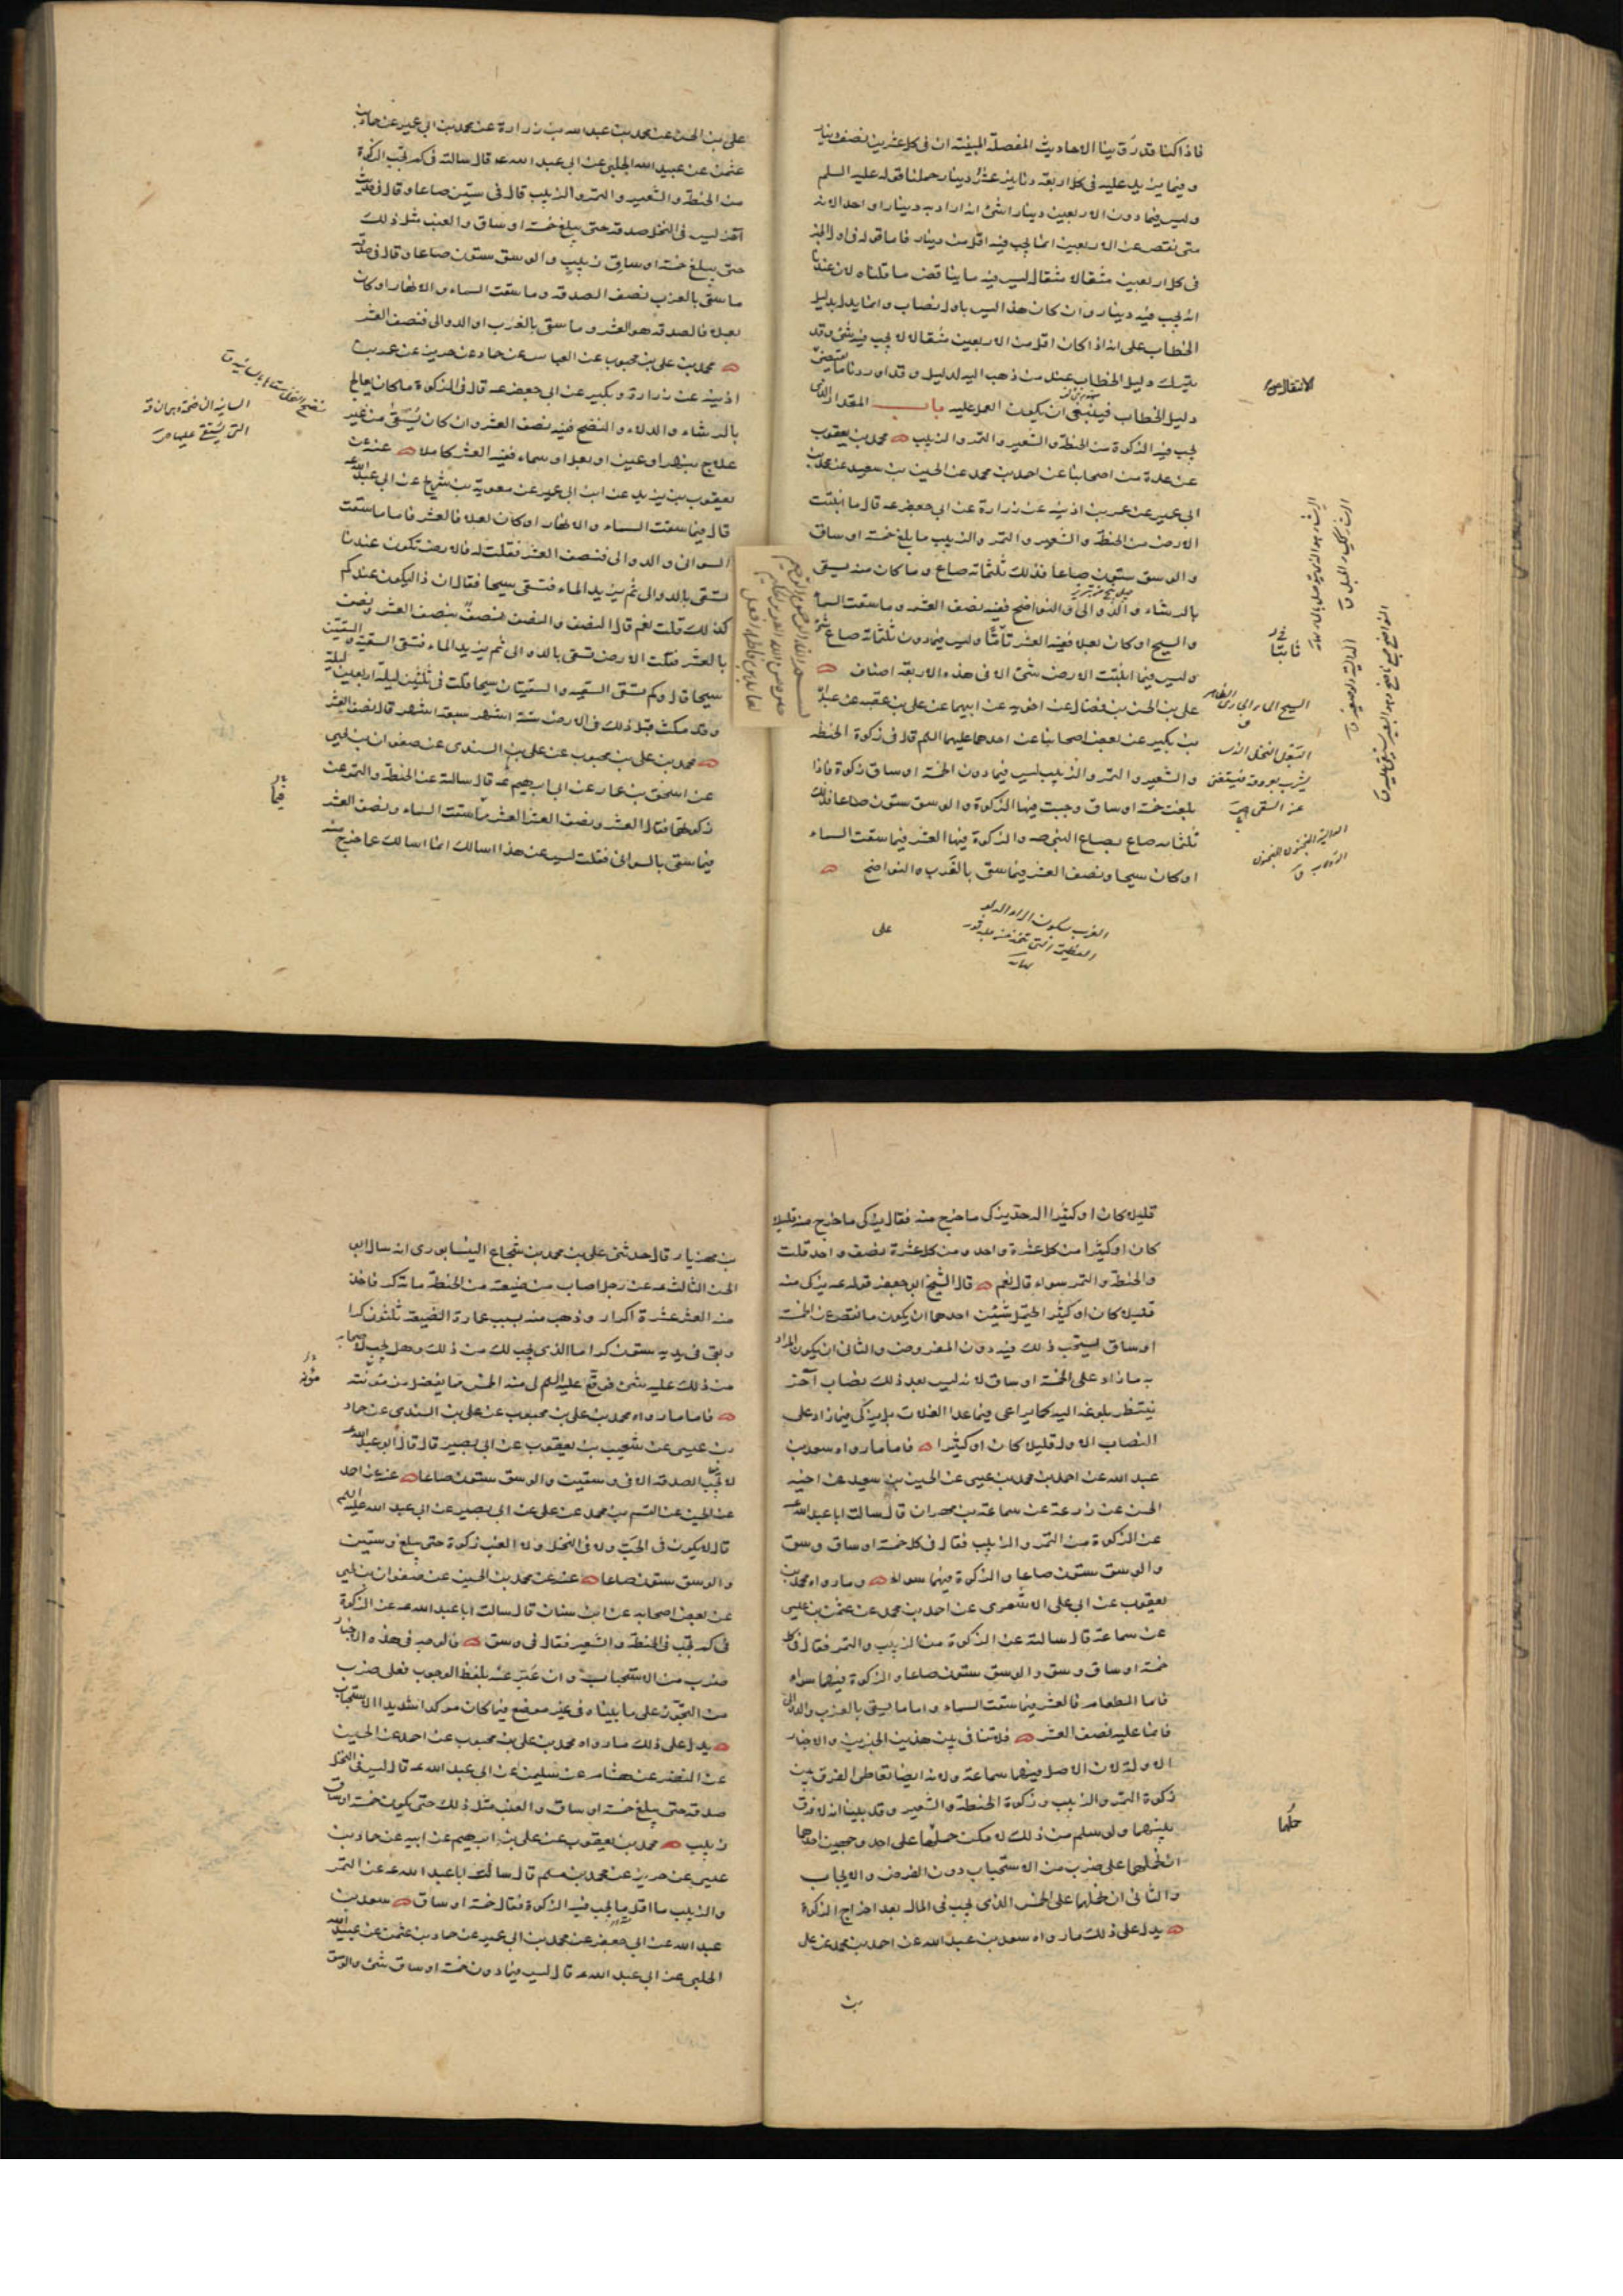 فاذا كنا قد روينا الاحاديث المفصلة المبينة ان في كل عشرين نصف دينار
وفيما يزيد عليه في كل اربعة دنانير عشر دينار حملنا قوله عليه السلم
وليس فيما دون الاربعين دينارا شئ انه اراد به دينارا واحدا لانه
متى نقص عن الاربعين انما يجب فيه اقل من دينار فاما قوله في اول الخبر
في كل اربعين مثقالا مثقال ليس فيه ما يناقض ما قلناه لان عندنا
انه يجب فيه دينار وان كان هذا ليس باول نصاب وانما يدل بدليل
الخطاب على انه اذا كان اقل من الاربعين مثقالا لا يجب فيه شئ وقد
يترك دليل الخطاب عند من ذهب اليه لدليل وقد اوردنا ما يقتضي
دليل الخطاب فينبغي ان يكون العمل عليه باب المقدار الذي
يجب فيه الزكوة من الحنطة والشعير والتمر والزبيب محمد بن يعقوب
عن عدة من اصحابنا عن احمد بن محمد عن الحسين بن سعيد عن محمد بن
ابي عمير عن عمر بن اذينه عن زرارة عن ابي جعفر عه قال ما انبتت
الارض من الحنطة والشعير والتمر والزبيب ما بلغ خمسة اوساق
والوسق ستون صاعا فذلك ثلثمائة صاع وما كان منه يسقى
بالرشاء والدوالى والنواضح ففيه نصف العشر وما سقت السماء
والسيح او كان بعلا ففيه العشر تاما وليس فيما دون ثلثمائة صاع شئ
وليس فيما انبتت الارض شئ الا في هذه الاربعة اصناف
على بن الحسن بن فضال عن اخويه عن ابيهما عن على بن عقبه عن عبد الله
بن بكير عن بعض اصحابنا عن احدهما عليهما السلم قال في زكوة الحنطه
والشعير والتمر والزبيب ليس فيما دون الخمسة اوساق زكوة فاذا
بلغت خمسة اوساق وجبت فيها الزكوة والوسق ستون صاعا فذلك
ثلثمائه صاع بصاع النبي صه والزكوة فيها العشر فيما سقت السماء
او كان سيحا ونصف العشر فيما سقى بالغرب والنواضح
السيح الماء الجارى الظاهر
الغرب بسكون الراء الدلو
العظيمة التى تتخذ من جلد ثور
نهايه
على
على بن الحسن عن محمد بن عبد الله بن زرارة عن محمد بن ابي عمير عن حماد بن
عثمن عن عبيد الله الحلبى عن ابي عبد الله عه قال سالته في كم تجب الزكوة
من الحنطة والشعير والتمر والزبيب قال في ستين صاعا وقال في حديث
آخر ليس في النخل صدقة حتى يبلغ خمسة اوساق والعنب مثل ذلك
حتى يبلغ خمسة اوساق زبيب والوسق ستون صاعا وقال في صدقة
ما سقى بالغرب نصف الصدقه وما سقت السماء والانهار او كان
بعلا فالصدقه هو العشر وما سقى بالغرب او الدوالى فنصف العشر
محمد بن على بن محبوب عن العباس عن حماد عن حريز عن عمر بن
اذينه عن زرارة وبكير عن ابي جعفر عه قال في الزكوة ما كان يعالج
بالرشاء والدلاء والنضح ففيه نصف العشر وان كان يسقى من غير
علاج بنهر او عين او بعل او سماء ففيه العشر كاملا عنه عن
يعقوب بن يزيد عن ابن ابي عمير عن معوية بن شريح عن ابي عبد الله عه
قال فيما سقت السماء والانهار او كان بعلا فالعشر فاما ما سقت
السوانى والدوالى فنصف العشر فقلت له فالارض تكون عندنا
تسقى بالدوالى ثم يزيد الماء فتسقى سيحا فقال ان ذا ليكون عندكم
كذلك قلت نعم قال النصف والنصف نصف بنصف العشر ونصف
بالعشر فقلت الارض تسقى بالدوالى ثم يزيد الماء فتسقى السقية والسقيتين
سيحا قال وكم تسقى السقيه والسقيتان سيحا قلت في ثلثين ليلة اربعين ليلة
وقد مكث قبل ذلك في الارض ستة اشهر سبعة اشهر قال نصف العشر
محمد بن على بن محبوب عن على بن السندى عن صفوان بن يحيى
عن اسحق بن عمار عن ابي ابرهيم عه قال سالته عن الحنطة والتمر عن
زكوتهما فقال العشر ونصف العشر العشر مما سقت السماء ونصف العشر
فيما سقى بالسوانى فقلت ليس عن هذا اسالك انما اسالك عما خرج منه
قليلا كان او كثيرا اله حد يزكى ما خرج منه فقال يزكى ما خرج منه قليلا
كان او كثيرا من كل عشرة واحد ومن كل عشرة نصف واحد قلت
والحنطة والتمر سواء قال نعم قال الشيخ ابو جعفر قوله عه يزكى منه
قليلا كان او كثيرا يحتمل شيئين احدهما ان يكون ما نقص عن الخمسة
اوساق يستحب ذلك فيه دون المفروض والثانى ان يكون المراد
به ما زاد على الخمسة اوساق لانه ليس بعد ذلك نصاب آخر
ينتظر بلوغه اليه كما يراعى فيما عدا الغلات بل يزكى فيما زاد على
النصاب الاول قليلا كان او كثيرا فاما ما رواه سعد بن
عبد الله عن احمد بن محمد بن عيسى عن الحسين بن سعيد عن اخيه
الحسن عن زرعة عن سماعة بن مهران قال سالت ابا عبد الله عه
عن الزكوة من التمر والزبيب فقال في كل خمسة اوساق وسق
والوسق ستون صاعا والزكوة فيهما سواء وما رواه محمد بن
يعقوب عن ابي على الاشعرى عن احمد بن محمد عن عثمن بن عيسى
عن سماعة قال سالته عن الزكوة من الزبيب والتمر فقال في كل
خمسة اوساق وسق والوسق ستون صاعا والزكوة فيهما سواء
فاما الطعام فالعشر فيما سقت السماء واما ما يسقى بالغرب والدوالى
فانما عليه نصف العشر فلا تنافى بين هذين الخبرين والاخبار
الاولة لان الاصل فيهما سماعة ولانه ايضا تعاطى الفرق بين
زكوة التمر والزبيب وزكوة الحنطة والشعير وقد بينا انه لا فرق
بينهما ولو سلم من ذلك لامكن حملهما على احد وجهين احدهما
ان نحملهما على ضرب من الاستحباب دون الفرض والايجاب
والثانى ان نحملها على الخمس الذى يجب في المال بعد اخراج الزكوة
يدل على ذلك ما رواه سعد بن عبد الله عن احمد بن محمد عن على
بن
حملها
بن مهزيار قال حدثنى على بن محمد بن شجاع النيسابورى انه سال ابا
الحسن الثالث عه عن رجل اصاب من ضيعته من الحنطة مائة كر فاخذ
منه العشر عشرة اكرار وذهب منه بسبب عمارة الضيعة ثلثون كرا
وبقى في يديه ستون كرا ما الذى يجب لك من ذلك وهل يجب لاصحابه
من ذلك عليه شئ فوقع عليه السلم لى منه الخمس مما يفضل من مؤنته
فاما ما رواه محمد بن على بن محبوب عن على بن السندى عن حماد
بن عيسى عن شعيب بن يعقوب عن ابي بصير قال قال ابو عبد الله عه
لا تجب الصدقة الا في وسقين والوسق ستون صاعا عنه عن احمد
عن الحسين عن القسم بن محمد عن على عن ابي بصير عن ابي عبد الله عليه السلم
قال لا يكون في الحب ولا في النخل ولا العنب زكوة حتى يبلغ وسقين
والوسق ستون صاعا عنه عن محمد بن الحسين عن صفوان بن يحيى
عن بعض اصحابه عن ابن سنان قال سالت ابا عبد الله عه عن الزكوة
في كم تجب في الحنطة والشعير فقال في وسق فالوجه في هذه الاخبار
ضرب من الاستحباب وان عبر عنه بلفظ الوجوب فعلى ضرب
من التجوز على ما بيناه في غير موضع فيما كان موكدا شديد الاستحباب
يدل على ذلك ما رواه محمد بن على بن محبوب عن احمد عن الحسين
عن النضر عن هشام عن سليمن عن ابي عبد الله عه قال ليس في النخل
صدقة حتى يبلغ خمسة اوساق والعنب مثل ذلك حتى يكون خمسة اوساق
زبيب محمد بن يعقوب عن على بن ابرهيم عن ابيه عن حماد بن
عيسى عن حريز عن محمد بن مسلم قال سالت ابا عبد الله عه عن التمر
والزبيب ما اقل ما يجب فيه الزكوة فقال خمسة اوساق سعد بن
عبد الله عن ابي جعفر عن محمد بن ابي عمير عن حماد بن عثمن عن عبيد الله
الحلبى عن ابي عبد الله عه قال ليس فيما دون خمسة اوساق شئ والوسق